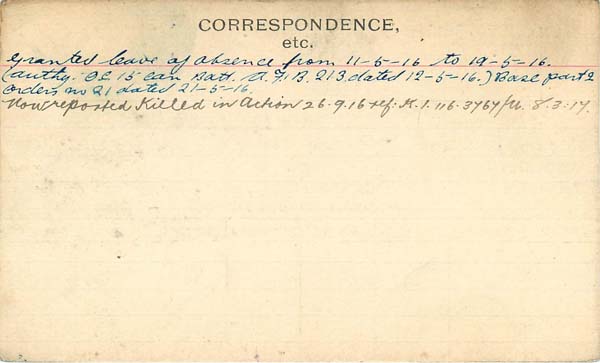 CORRESPONDENCE,
etc.
Granted leave of absence from 11-5-16 to 19-5-16.
(authy. O.C. 15 Can Batt. A.F.B. 213 dated 12-5-16.) Base part 2
orders no 21 dated 21-5-16.
Now reposted Killed in Action 26.9.16 ref: K.1.116.3767/M. 8.3.17.